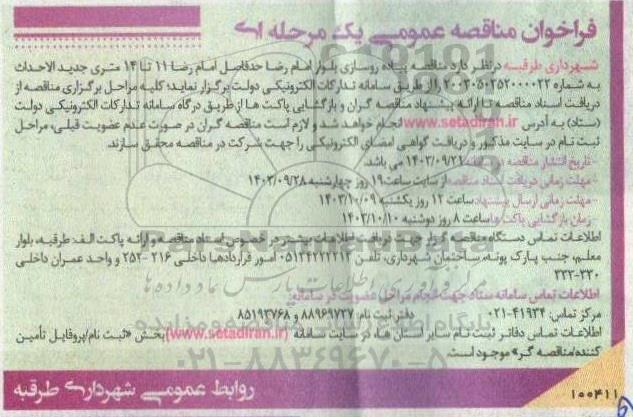 فراخوان مناقصه عمومی یک مرحله ای
شهرداری طرقبه در نظر دارد مناقصه پیاده روسازی بلوار امام رضا حدفاصل امام رضا ۱۱ تا ۱۴ متری جدید الاحداث
به شماره ۲۰۰۳۰۵۰۲۵۲۰۰۰۰۲۲ را از طریق سامانه تدارکات الکترونیکی دولت برگزار نماید؛ کلیه مراحل برگزاری مناقصه از
دریافت اسناد مناقصه تا ارائه پیشنهاد مناقصه گران و بازگشایی پاکت ها از طریق درگاه سامانه تدارکات الکترونیکی دولت
(ستاد) به آدرس www.setadiran.ir انجام خواهد شد و لازم است مناقصه گران در صورت عدم عضویت قبلی، مراحل
ثبت نام در سایت مذکور و دریافت گواهی امضای الکترونیکی را جهت شرکت در مناقصه محقق سازند.
تاریخ انتشار مناقصه در ۱۴۰۳/۰۹/۲۱ می باشد.
- مهلت زمانی دریافت اسناد مناقصه از سایت ساعت ۱۹ روز چهارشنبه ۱۴۰۳/۰۹/۲۸
- مهلت زمانی ارسال پیشنهاد ساعت ۱۲ روز یکشنبه ۱۴۰۳/۱۰/۰۹
- زمان بازگشایی پاکت ها ساعت ۸ روز دوشنبه ۱۴۰۳/۱۰/۱۰
اطلاعات تماس دستگاه مناقصه گزار جهت دریافت اطلاعات بیشتر در خصوص اسناد مناقصه و ارائه پاکت الف: طرقبه، بلوار
معلم، جنب پارک پونه، ساختمان شهرداری، تلفن ۰۵۱۳۴۲۲۲۲۱۳ امور قراردادها داخلی ۲۱۶ - ۲۵۲ و واحد عمران داخلی
۳۳۰-۳۳۲
اطلاعات تماس سامانه ستاد جهت انجام مراحل عضویت در سامانه:
مرکز تماس: ۴۱۹۳۴-۰۲۱ دفتر ثبت نام: ۸۸۹۶۹۷۳۷ و ۸۵۱۹۳۷۶۸
اطلاعات تماس دفاتر ثبت نام سایر استان ها، در سایت سامانه (www.setadiran.ir) بخش «ثبت نام/پروفایل تأمین
کننده/مناقصه گر» موجود است.
روابط عمومی شهرداری طرقبه
۱۰۰۴۱۱
۰۲۱-۸۸۳۴۹۶۷۰-۵